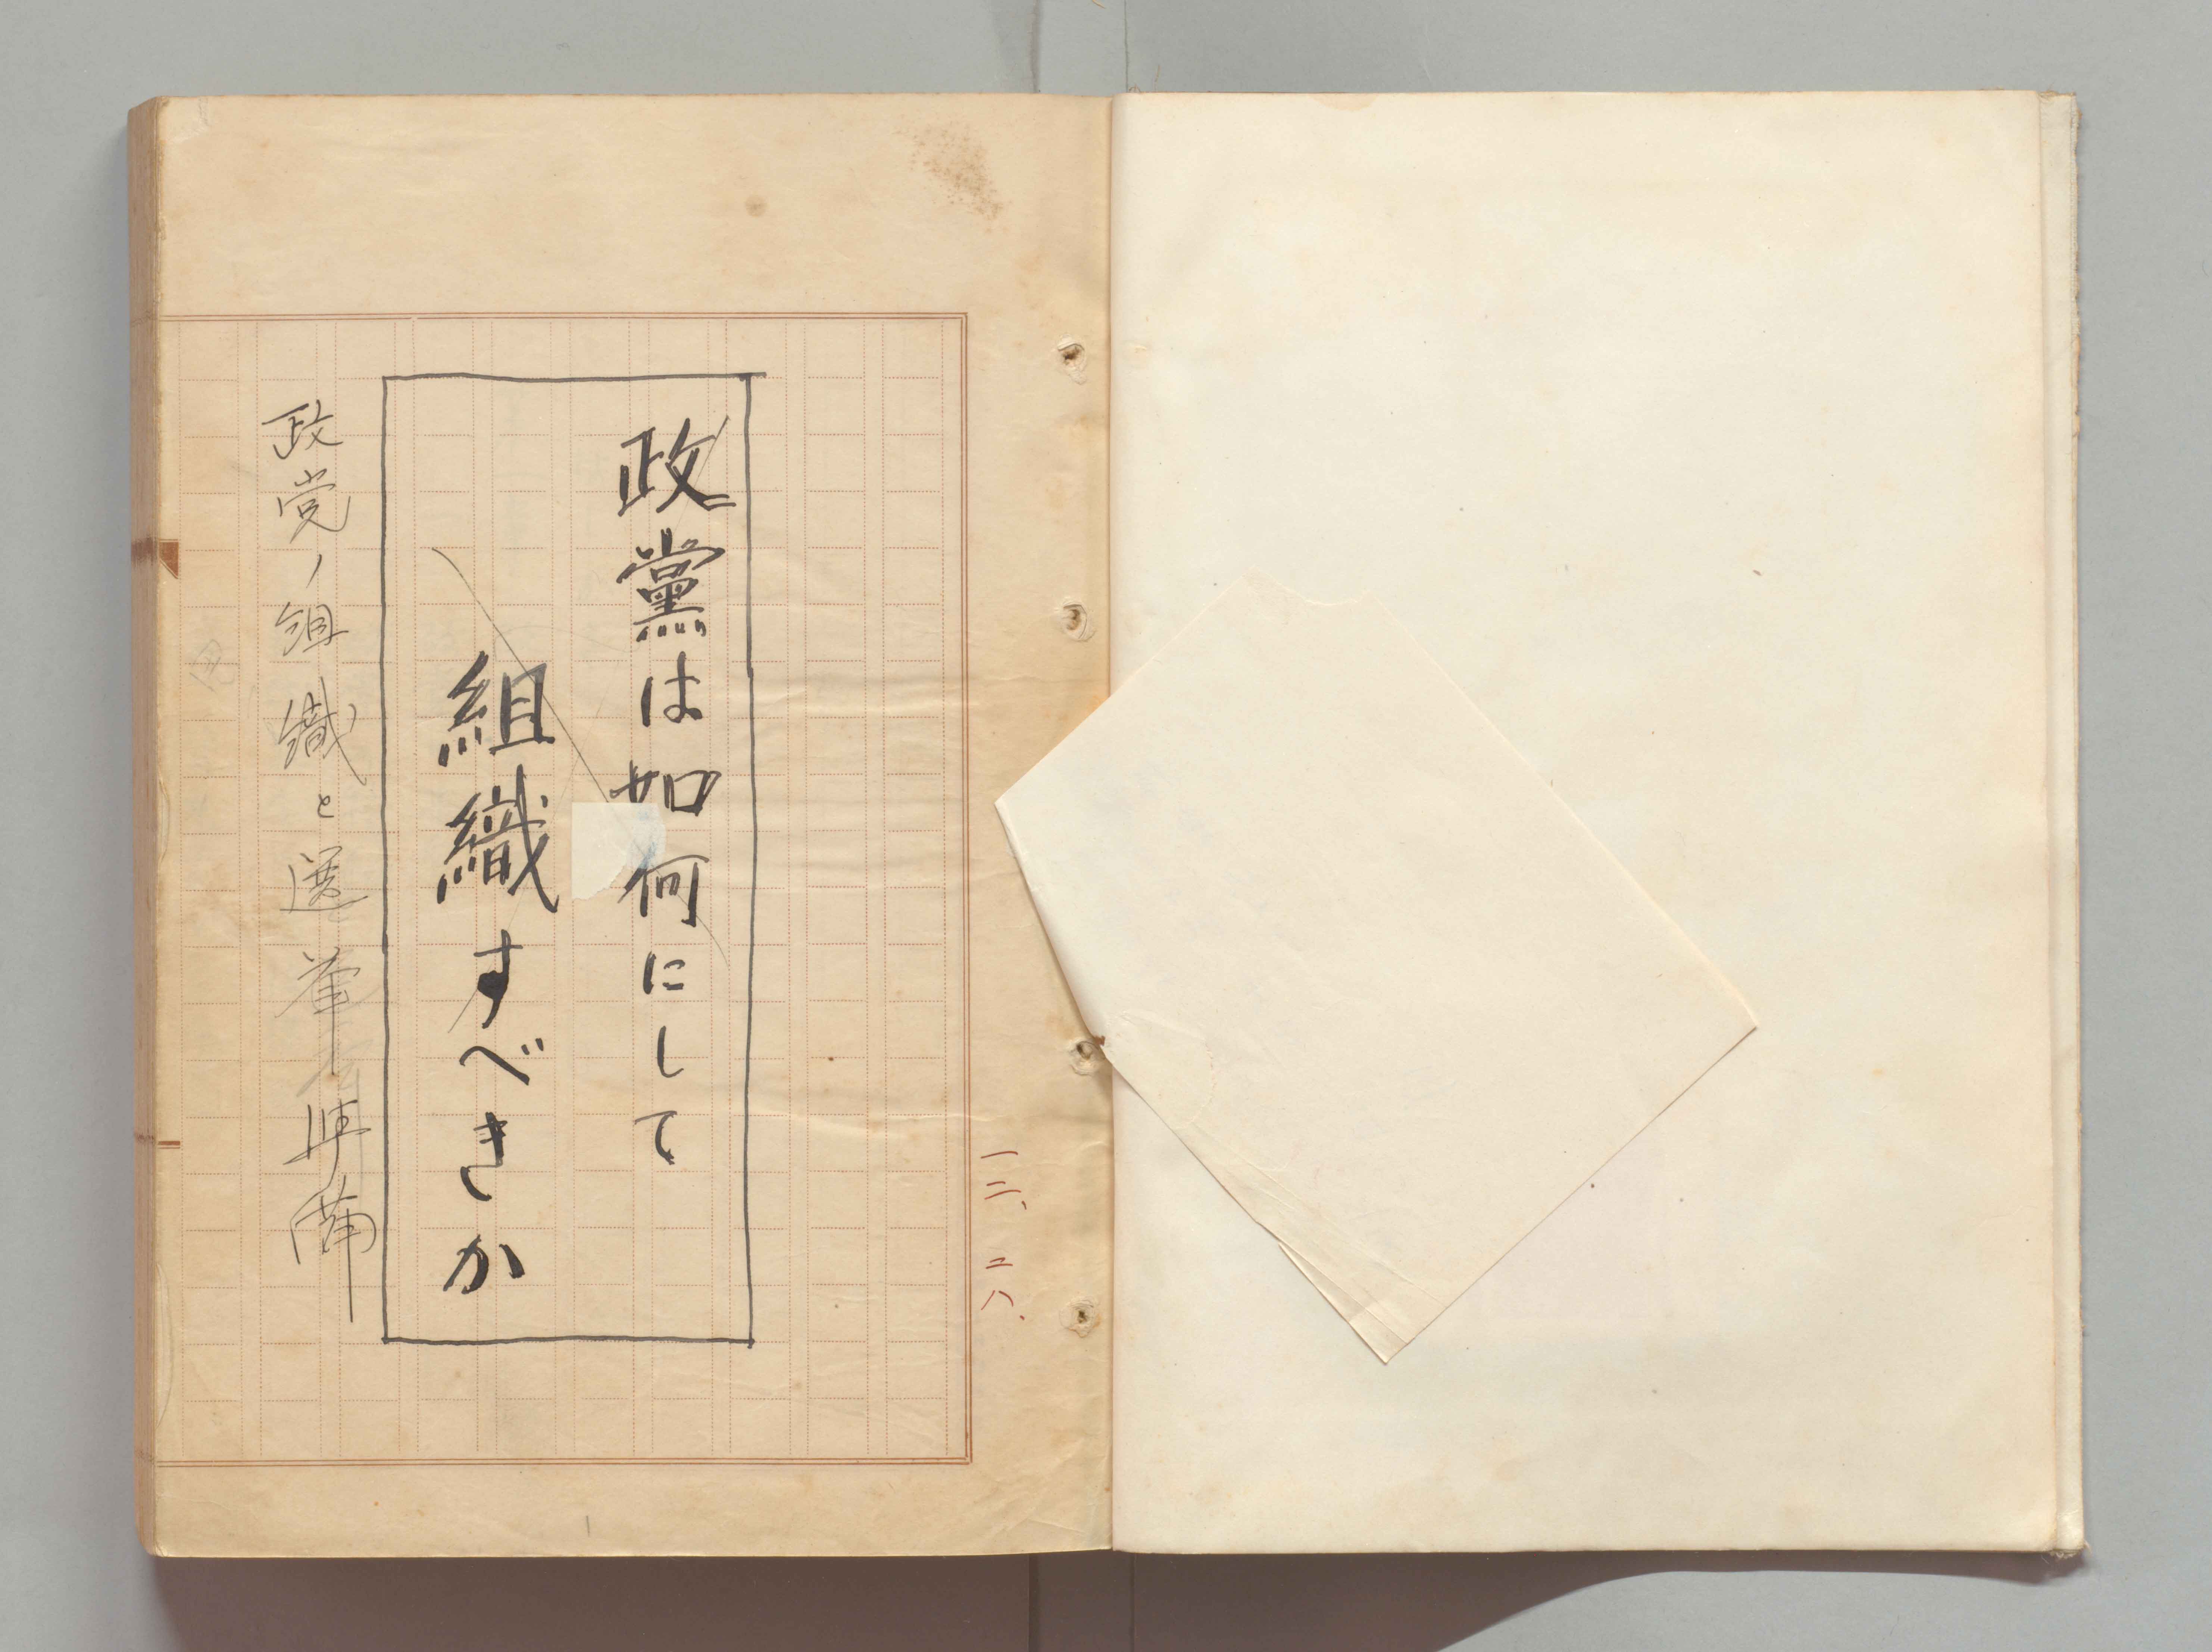 一三、二八、
政黨は如何にして
組織すべきか
政党ノ組織と選挙準備